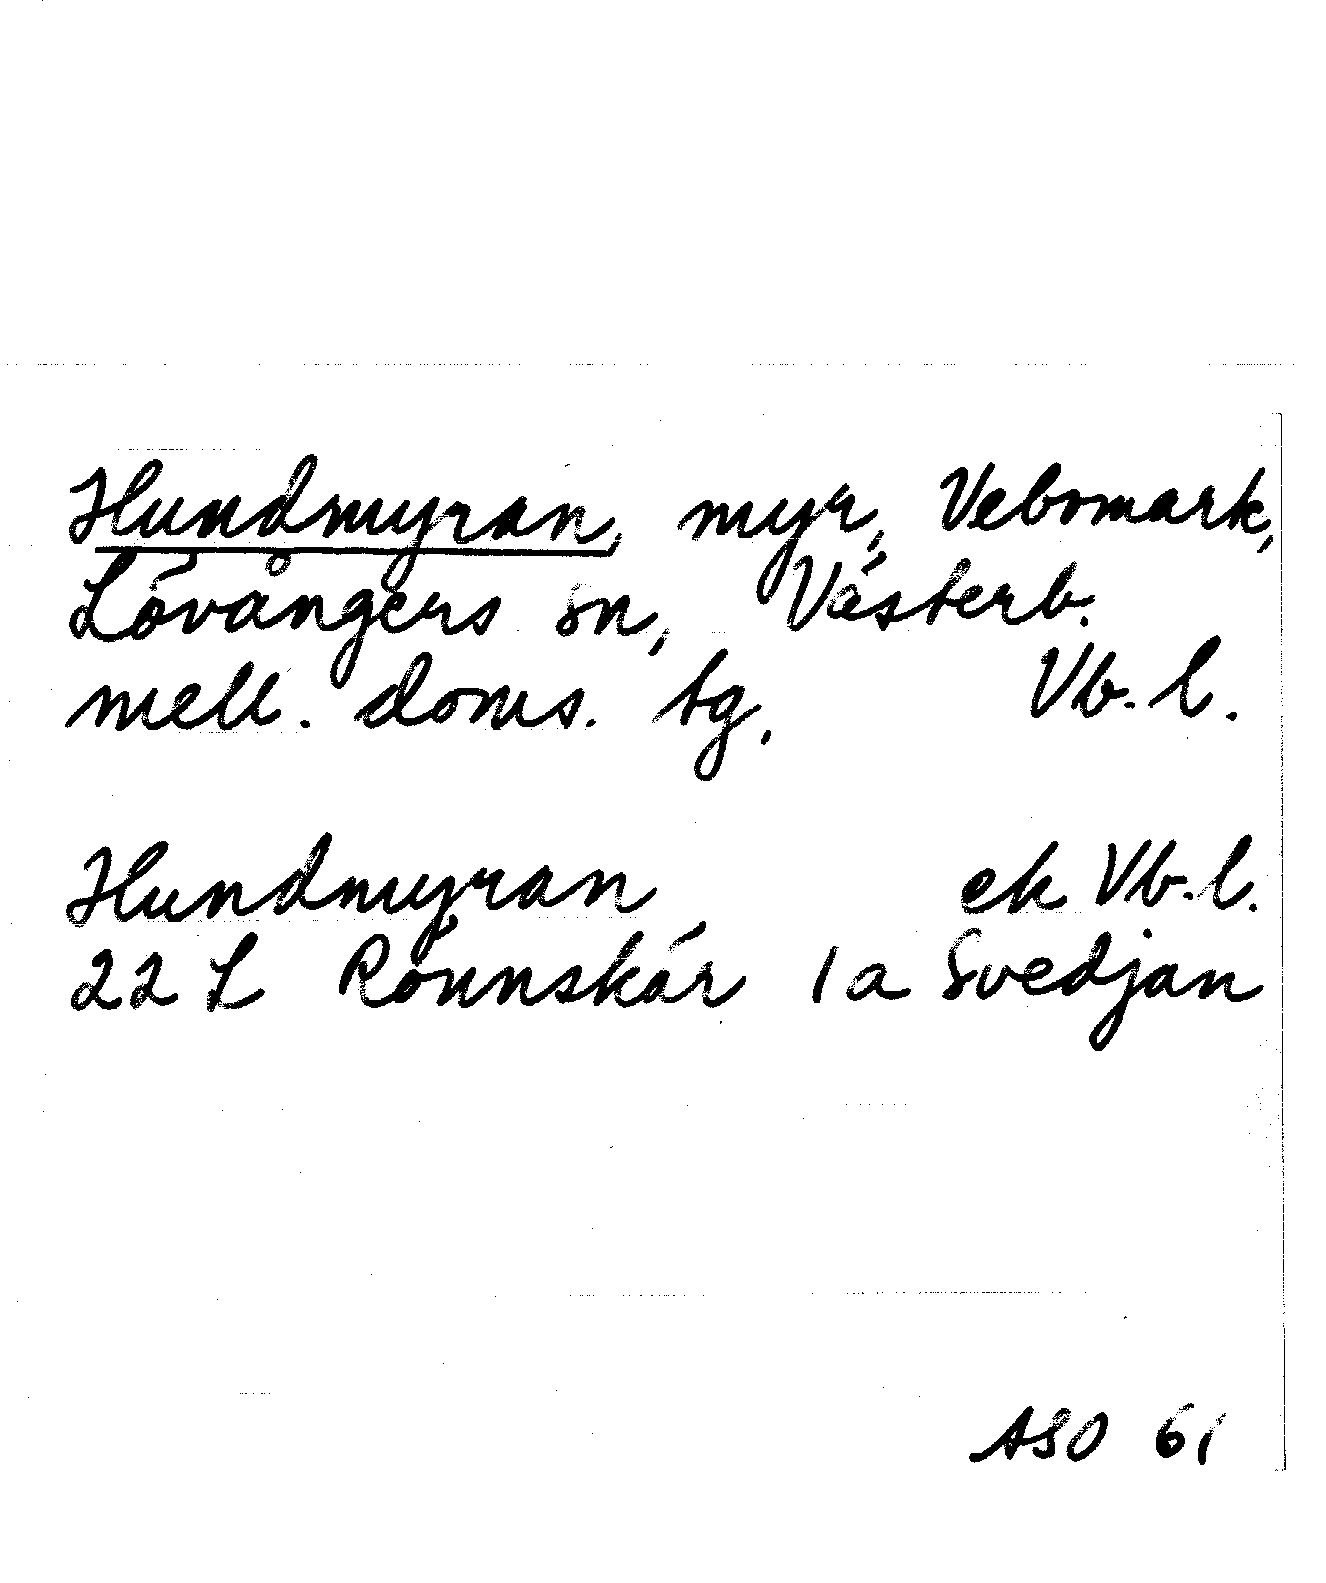 Hundmyran, myr, Vebomark,
Lövångers sn, Västerb.
mell. doms. tg, Vb. l.
Hundmyran ek Vb. l.
22 L Rönnskär 1a Svedjan
ASO 61